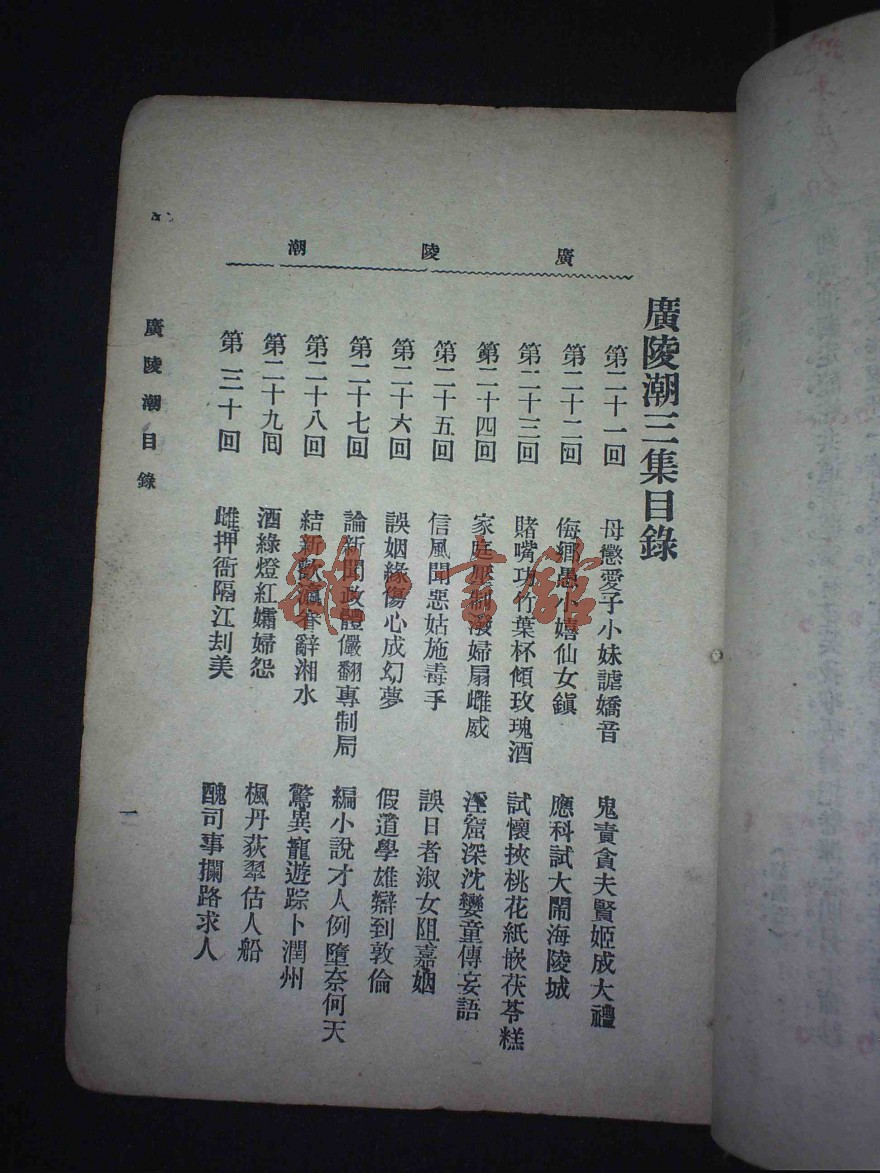 廣陵潮
廣陵潮三集目錄
第二十一回 母懲愛子小妹謔嬌音 鬼責貪夫賢姬成大禮
第二十二回 侮細愚卜嬉仙女鎮 應科試大鬧海陵城
第二十三回 賭嘴功竹葉杯傾玫瑰酒 試懷挾桃花紙嵌茯苓糕
第二十四回 家庭壓制潑婦扇雌威 淫窟深沈孌童傳妄語
第二十五回 信風聞惡姑施毒手 誤日者淑女阻嘉姻
第二十六回 誤姻緣傷心成幻夢 假道學雄辯到敦倫
第二十七回 論新聞政體儼翻專制局 編小說才人例墮奈何天
第二十八回 結新歡瀛眷辭湘水 驚異寵遊踪卜潤州
第二十九回 酒綠燈紅孀婦怨 楓丹荻翠估人船
第三十回 雌押衙隔江刦美 醜司事攔路求人
廣陵潮目錄
一